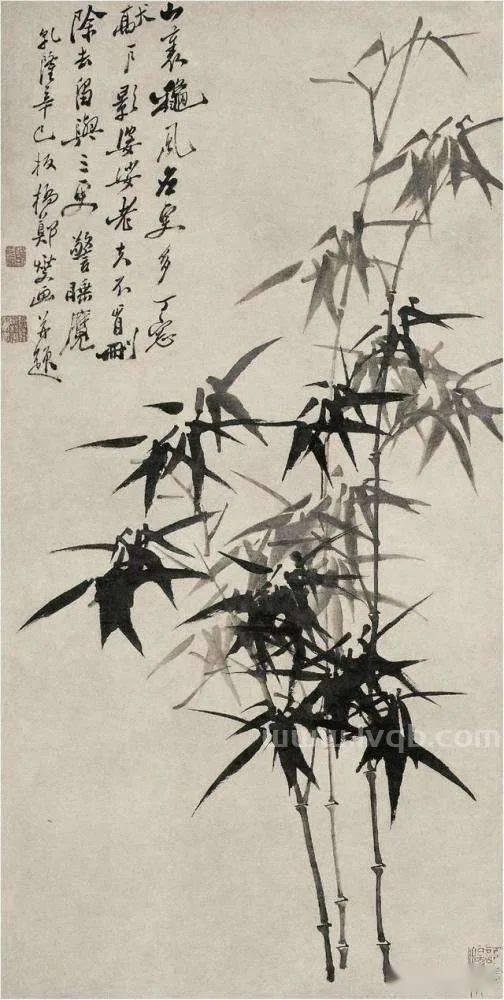 山裏風更多丁窓
敲戶影婆娑老夫不肯刪
除去留與三更警睡魔
乾隆辛巳板橋鄭燮画并題
www.lvqb.com